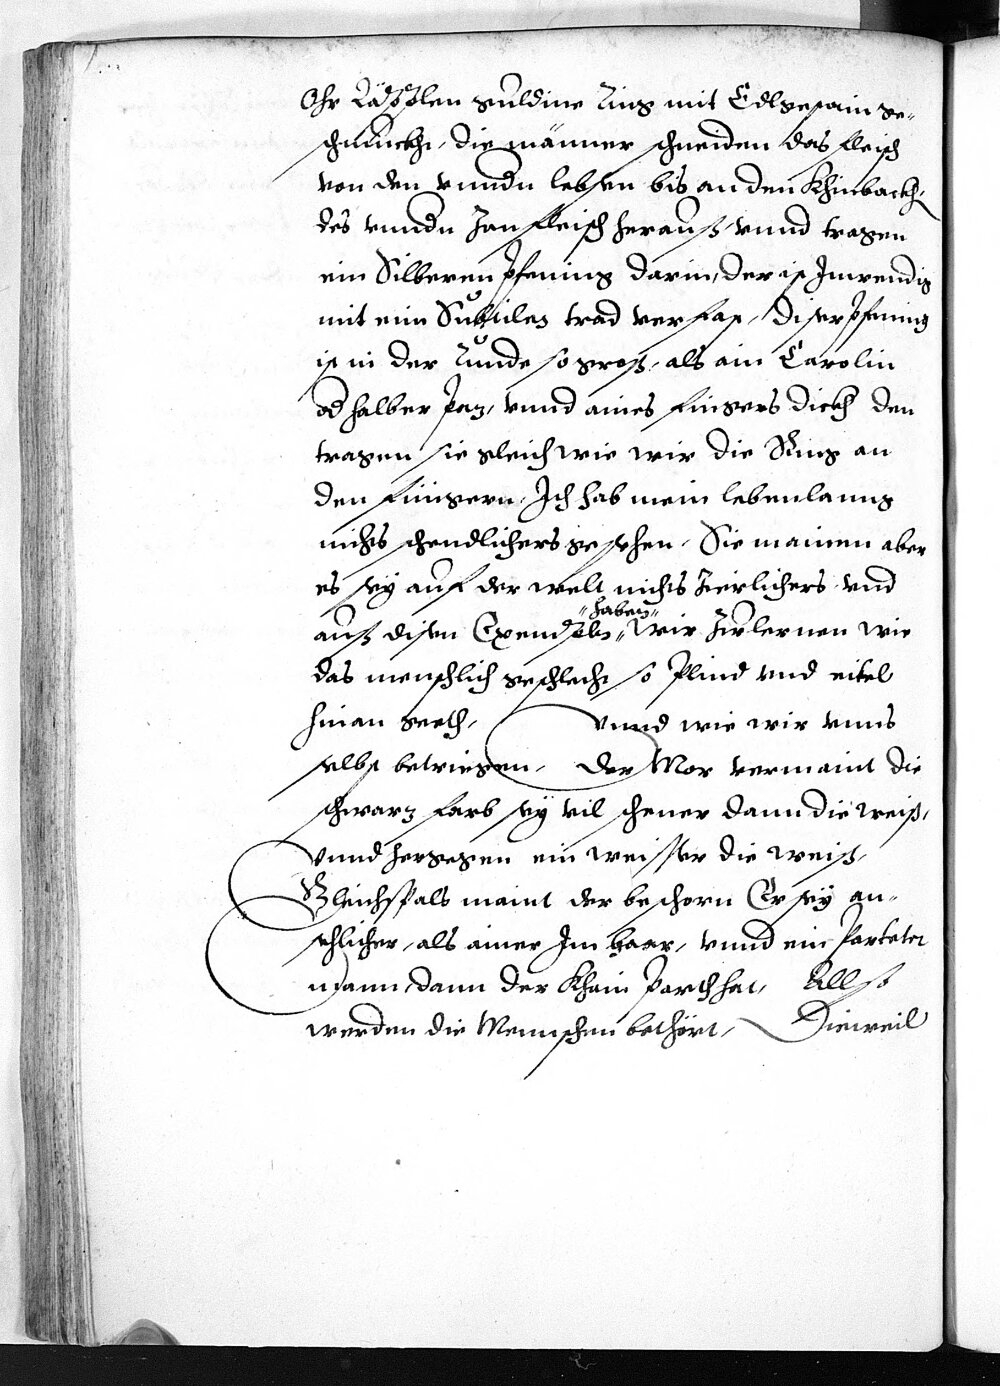 Ohr Läpplen guldine Ring mit Edlgestain ge-
schmuckht, die männer schneiden das fleisch
von den undn lebsen bis an den Khinbackh,
des undn Zanfleisch herauß vnnd tragen
ein Silberen Pfening darin, der ist Inwendig
mit eim Subtilen trad verfast, Diser Pfening
ist in der Runde so groß, als ain Carolin
od halber Paz, vnnd aines fingers dickh den
tragen sie gleich wie wir die Ring an
den fingern, Ich hab mein lebenlanng
nichts schendlichers gesehen, Sie mainen aber
es sey auf der welt nichts Zierlichers vnd
auß disen Exemplen haben wir Zuelernen wie
das menschlich geschlecht so Plind vnd eitel
hinan geeth, vnnd wie wir vnns
selbst betriegen, Der Mor vermaint die
schwarz farb sey vil schener dann die weiß,
vnnd hergegen ein weisser die weiß,
Gleichsfals maint der beschorn Er sey an-
sehlicher, als ainer Im haar, vnnd ein Parteter
mann, dann der Khain Parth hat, Allso
werden die Mennschen bethört, Dieweil